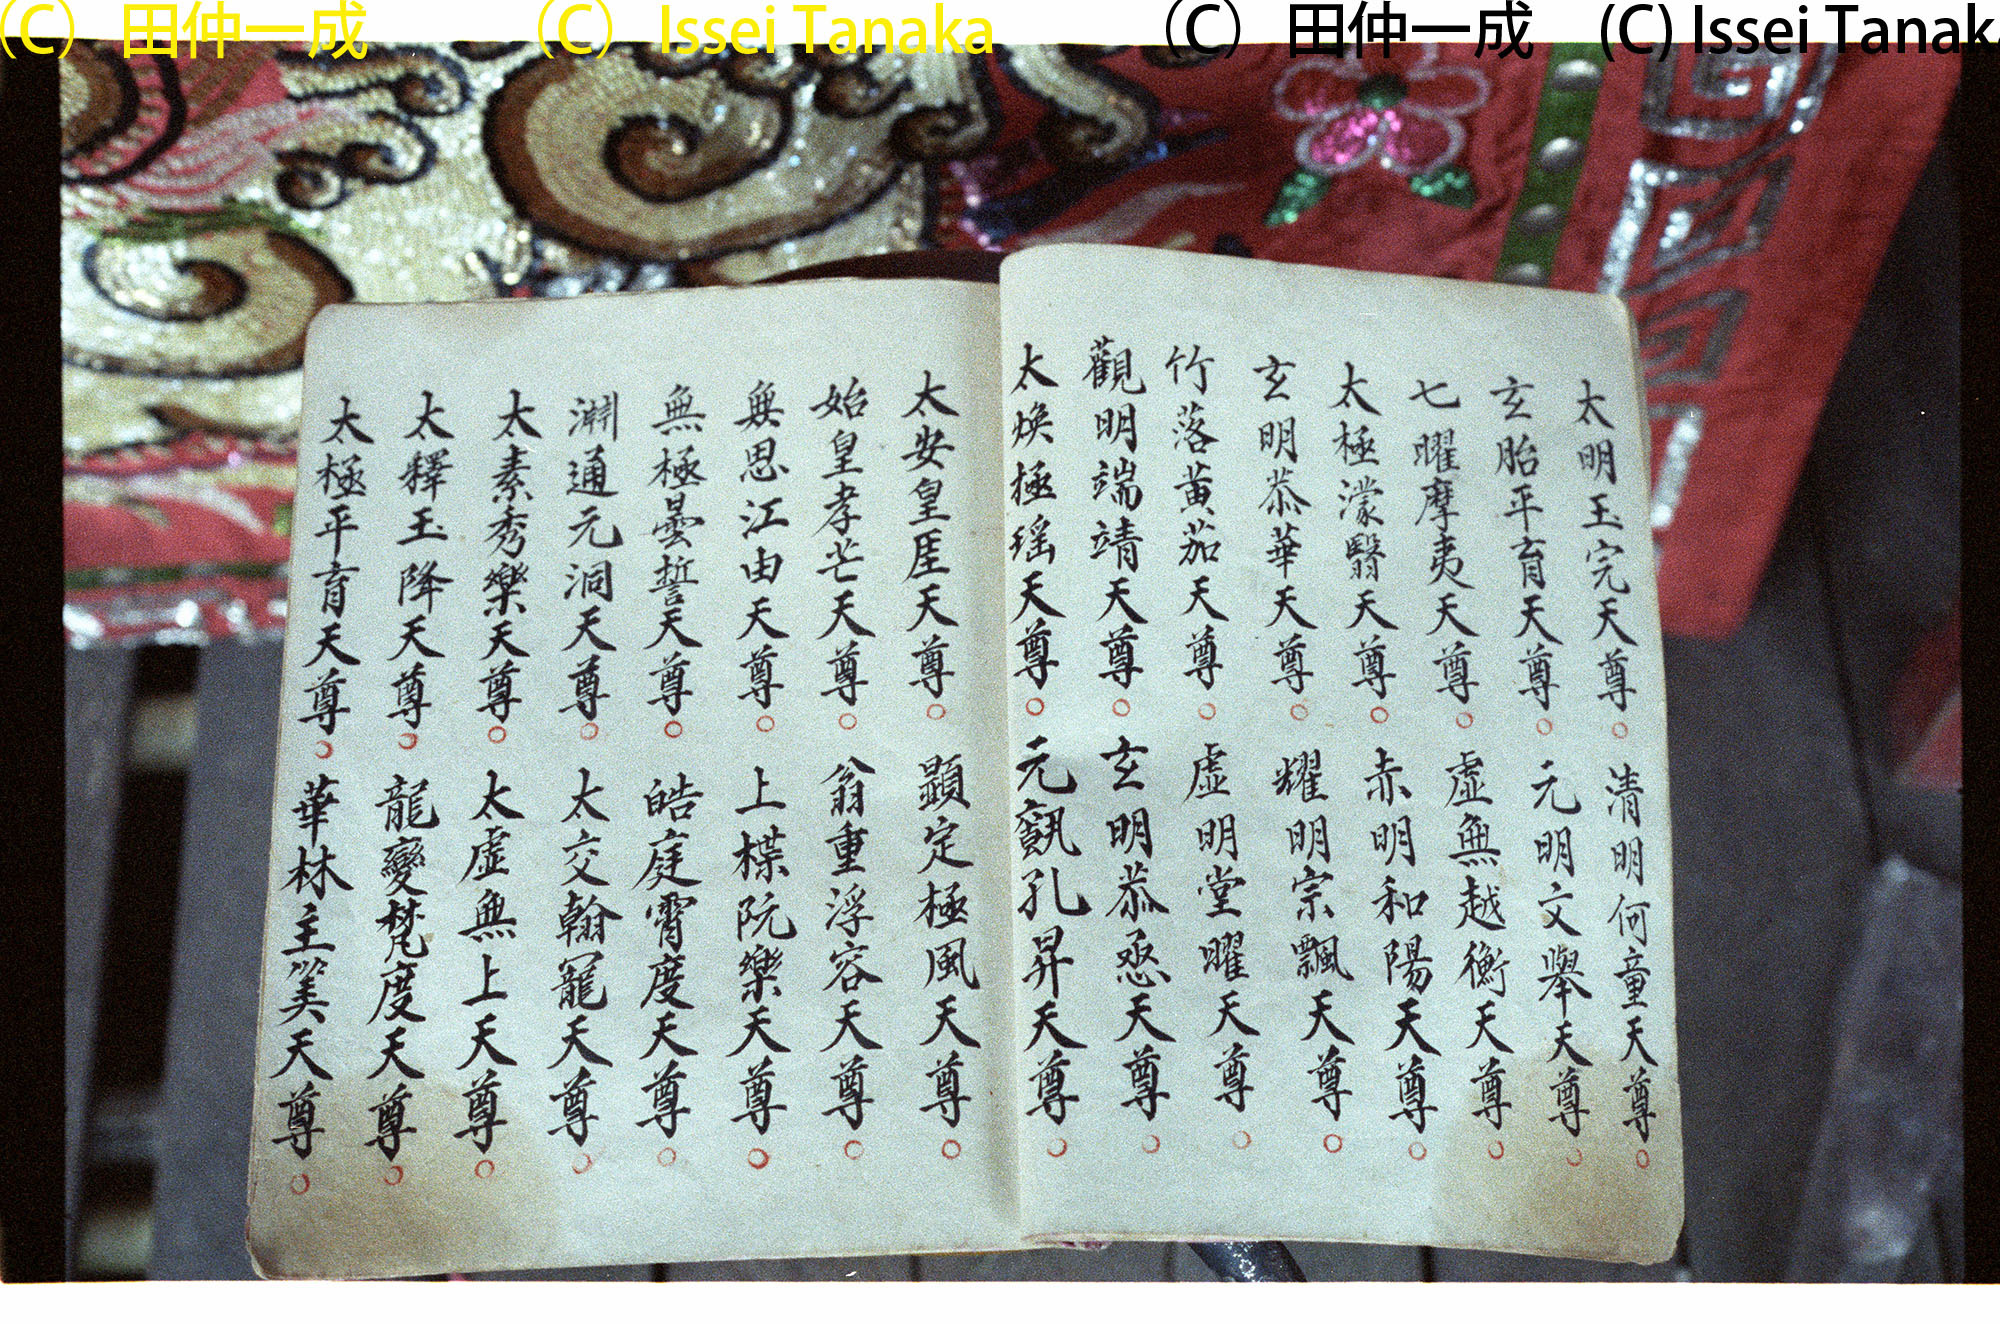 (C) 田仲一成 (C) Issei Tanaka (C) 田仲一成 (C) Issei Tanaka
太明玉完天尊○清明何童天尊○
玄胎平育天尊○元明文舉天尊○
七曜摩夷天尊○虛無越衡天尊○
太極濛翳天尊○赤明和陽天尊○
玄明恭華天尊○耀明宗飄天尊○
竹落黃茄天尊○虛明堂曜天尊○
觀明端靖天尊○玄明恭悫天尊○
太煥極瑤天尊○元孔昇天尊○
太安皇崖天尊○顯定極風天尊○
始皇孝芒天尊○翁重浮容天尊○
無思江由天尊○上楪阮樂天尊○
無極曇誓天尊○皓庭霄度天尊○
淵通元洞天尊○太文翰寵天尊○
太素秀樂天尊○太虛無上天尊○
太釋玉降天尊○龍變梵度天尊○
太極平育天尊○華林主天尊○